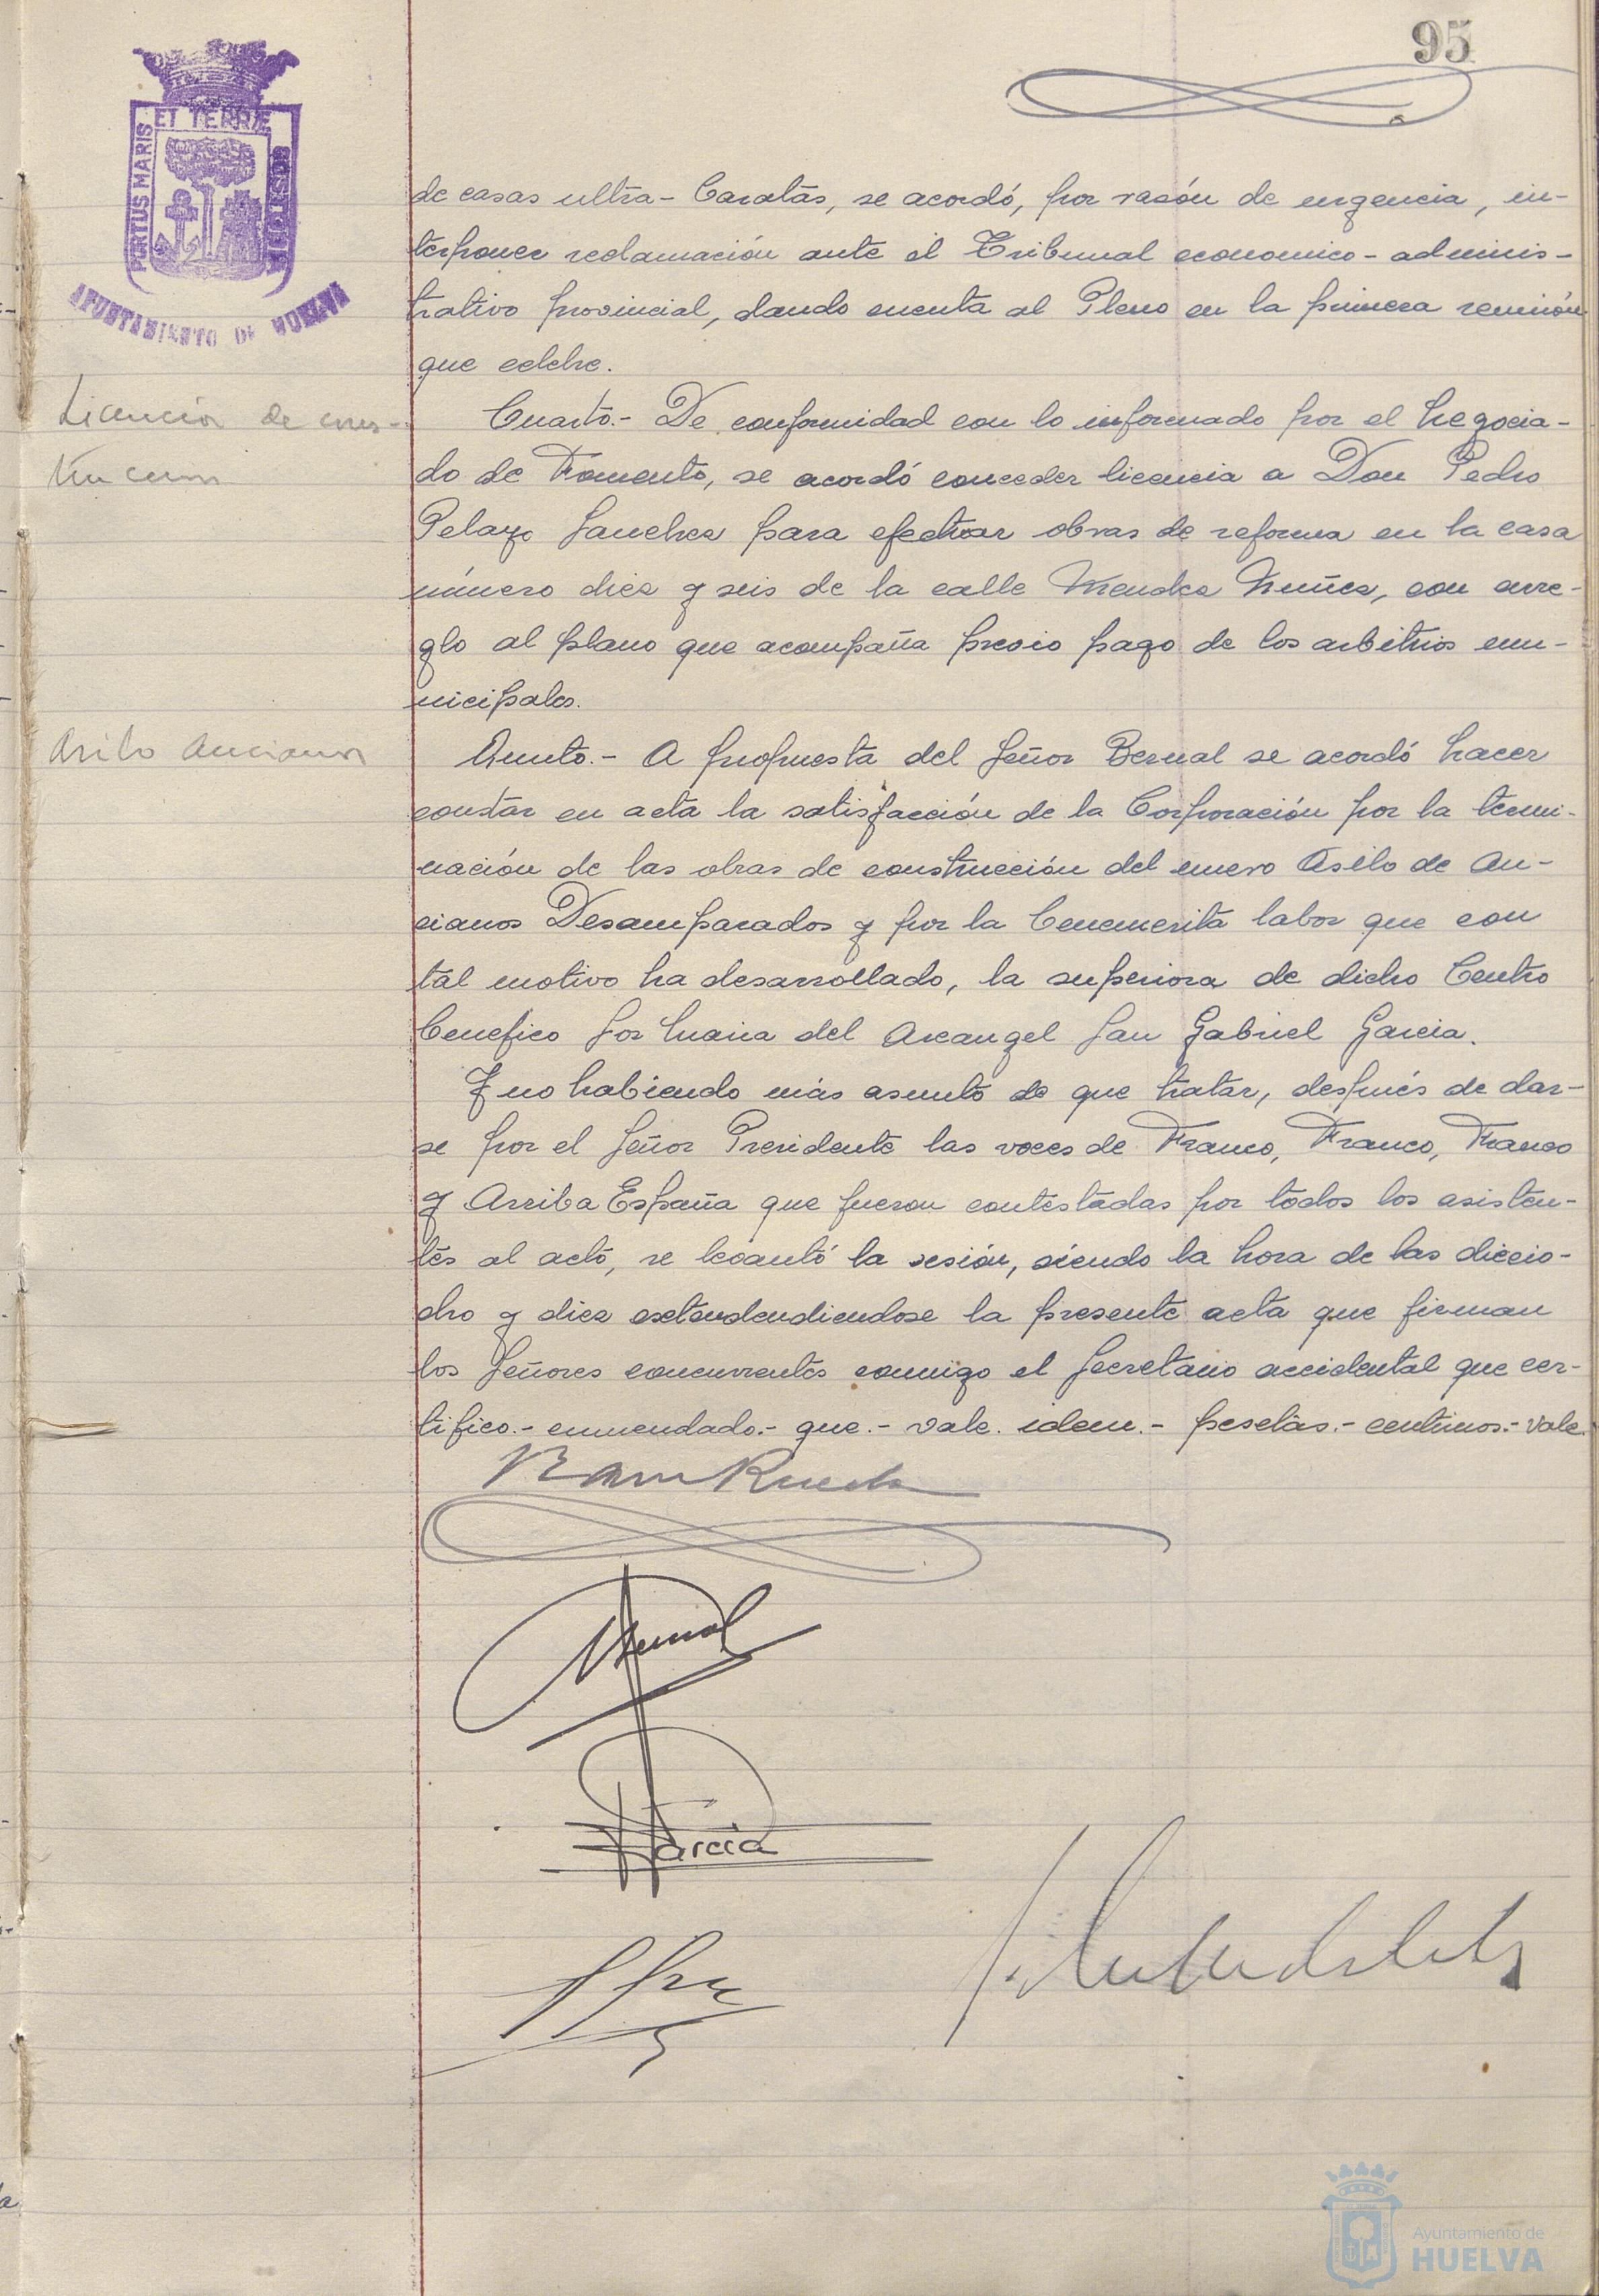 95
PORTUS MARIS ET TERRÆ CUSTODIA
AYUNTAMIENTO DE HUELVA
de casas ultra-baratas, se acordó, por razón de urgencia, in-
terponer reclamación ante el Tribunal economico-adminis-
trativo provincial, dando cuenta al Pleno en la primera reunión
que celebre.
Licencia de cons-
truccion
Cuarto.- De conformidad con lo informado por el Negocia-
do de Fomento, se acordó conceder licencia a Don Pedro
Pelayo Sanchez para efectuar obras de reforma en la casa
número diez y seis de la calle Mendez Nuñez, con arre-
glo al plano que acompaña previo pago de los arbitrios mu-
nicipales.
Asilo Ancianos
Quinto.- A propuesta del Señor Bernal se acordó hacer
constar en acta la satisfacción de la Corporación por la termi-
nación de las obras de construcción del nuevo Asilo de An-
cianos Desamparados y por la benemerita labor que con
tal motivo ha desarrollado, la superiora de dicho Centro
benefico Sor Maria del Arcangel San Gabriel Garcia.
Y no habiendo más asunto de que tratar, después de dar-
se por el Señor Presidente las voces de Franco, Franco, Franco
y Arriba España que fueron contestadas por todos los asisten-
tes al acto, se levantó la sesión, siendo la hora de las diecio-
cho y diez extendendiendose la presente acta que firman
los Señores concurrentes conmigo el Secretario accidental que cer-
tifico.- enmendado.- que.- vale. idem.- pesetas.- centimos.- vale.
Bernal
Garcia
Ayuntamiento de
HUELVA